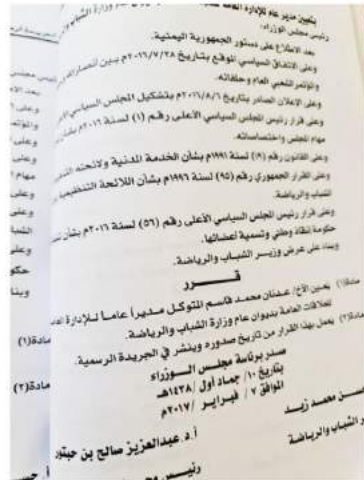 بتعيين مدير عام للإدارة العامة
رئيس مجلس الوزراء:
بعد الاطلاع على دستور الجمهورية اليمنية.
وعلى الاتفاق السياسي الموقع بتاريخ ٢٠١٦/٧/٢٨م بين أنصار الله
والمؤتمر الشعبي العام وحلفائه.
وعلى الإعلان الصادر بتاريخ ٢٠١٦/٨/٦م بتشكيل المجلس السياسي
وعلى قرار رئيس المجلس السياسي الأعلى رقم (١) لسنة ٢٠١٦م بشأن
مهام المجلس واختصاصاته.
وعلى القانون رقم (١٩) لسنة ١٩٩١م بشأن الخدمة المدنية ولائحته
وعلى القرار الجمهوري رقم (٩٥) لسنة ١٩٩٦م بشأن اللائحة التنظيمية
الشباب والرياضة.
وعلى قرار رئيس المجلس السياسي الأعلى رقم (٥٦) لسنة ٢٠١٦م بشأن
حكومة إنقاذ وطني وتسمية أعضائها.
وبناء على عرض وزير الشباب والرياضة.
قـــرر
مادة(١) يعين الأخ/ عدنان محمد قاسم المتوكل مديراً عاماً للإدارة
للعلاقات العامة بديوان عام وزارة الشباب والرياضة.
مادة(٢) يعمل بهذا القرار من تاريخ صدوره وينشر في الجريدة الرسمية.
صدر برئاسة مجلس الوزراء
بتاريخ ١٠/ جماد أول /١٤٣٨هـ
الموافق ٧ / فبراير /٢٠١٧م
محمد زيد
أ.د. عبدالعزيز صالح بن حبتور
الشباب والرياضة
رئيس
مادة(١)
مادة(٢)